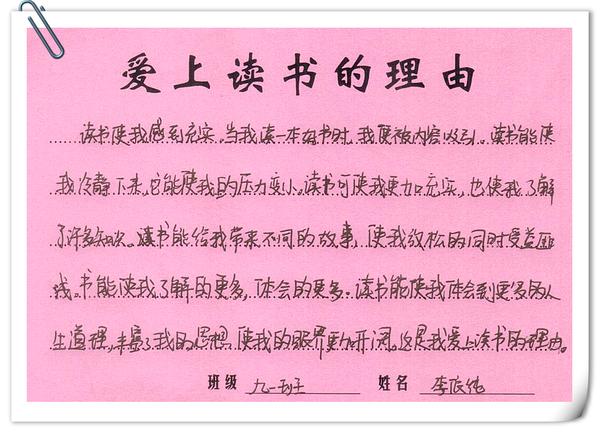 爱上读书的理由
读书使我感到充实。当我读一本好书时，我便被内容吸引。读书能使
我冷静下来，它能使我的压力变小。读书可使我更加充实，也使我了解
了许多知识。读书能给我带来不同的故事，使我放松的同时受益匪
浅。书能使我了解的更多，体会的更多。读书能使我体会到更多的人
生道理，丰富了我的思想，使我的眼界更加开阔。这是我爱上读书的理由。
班级 九一班 姓名 李